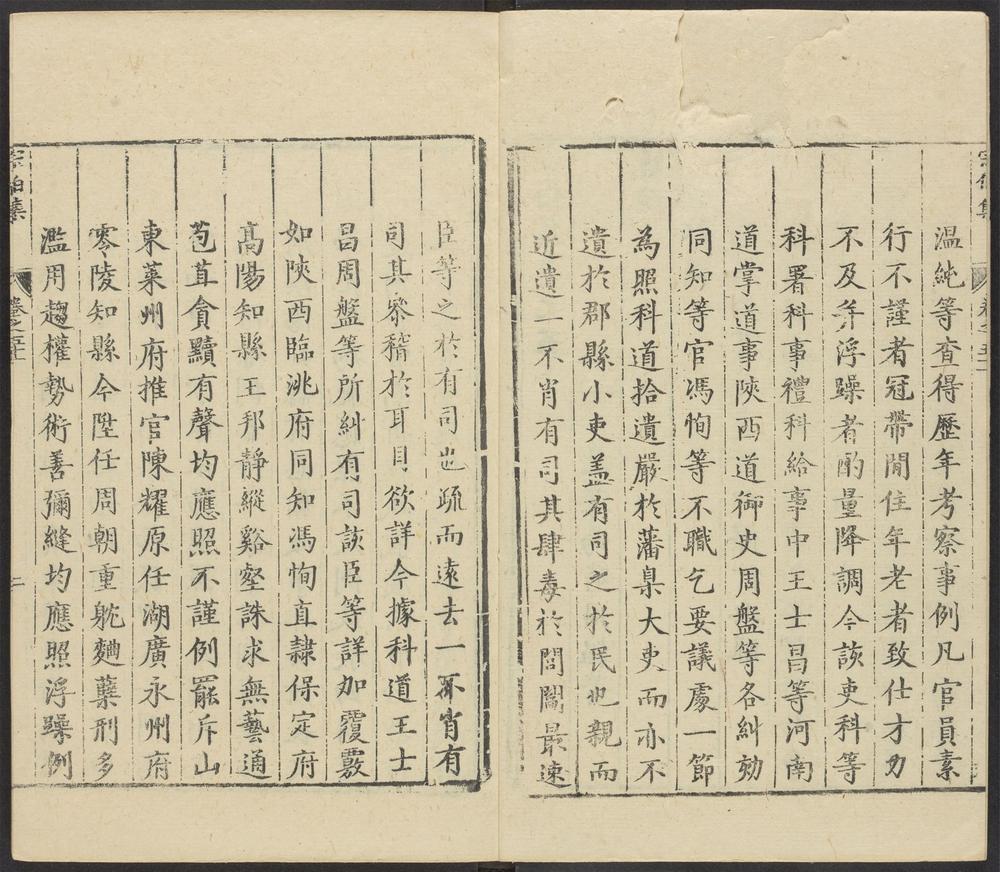 溫純等查得歷年考察事例凡官員素
行不謹者冠帶閒住年老者致仕才力
不及并浮躁者酌量降調今該吏科等
科署科事禮科給事中王士昌等河南
道掌道事陝西道御史周盤等各糾劾
同知等官馮恂等不職乞要議處一節
為照科道拾遺嚴於藩臬大吏而亦不
遺於郡縣小吏盖有司之於民也親而
近遺一不肖有司其肆毒於閭閻最速
臣等之於有司也疏而遠去一不肖有
司其叅稽於耳目欲詳今據科道王士
昌周盤等所糾有司該臣等詳加覆覈
如陝西臨洮府同知馮恂直隷保定府
高陽知縣王邦靜縱谿壑誅求無藝通
苞苴貪黷有聲均應照不謹例罷斥山
東萊州府推官陳耀原任湖廣永州府
零陵知縣今陞任周朝重躭麯蘖刑多
濫用趨權勢術善彌縫均應照浮躁例
宗伯集
卷之五十
二